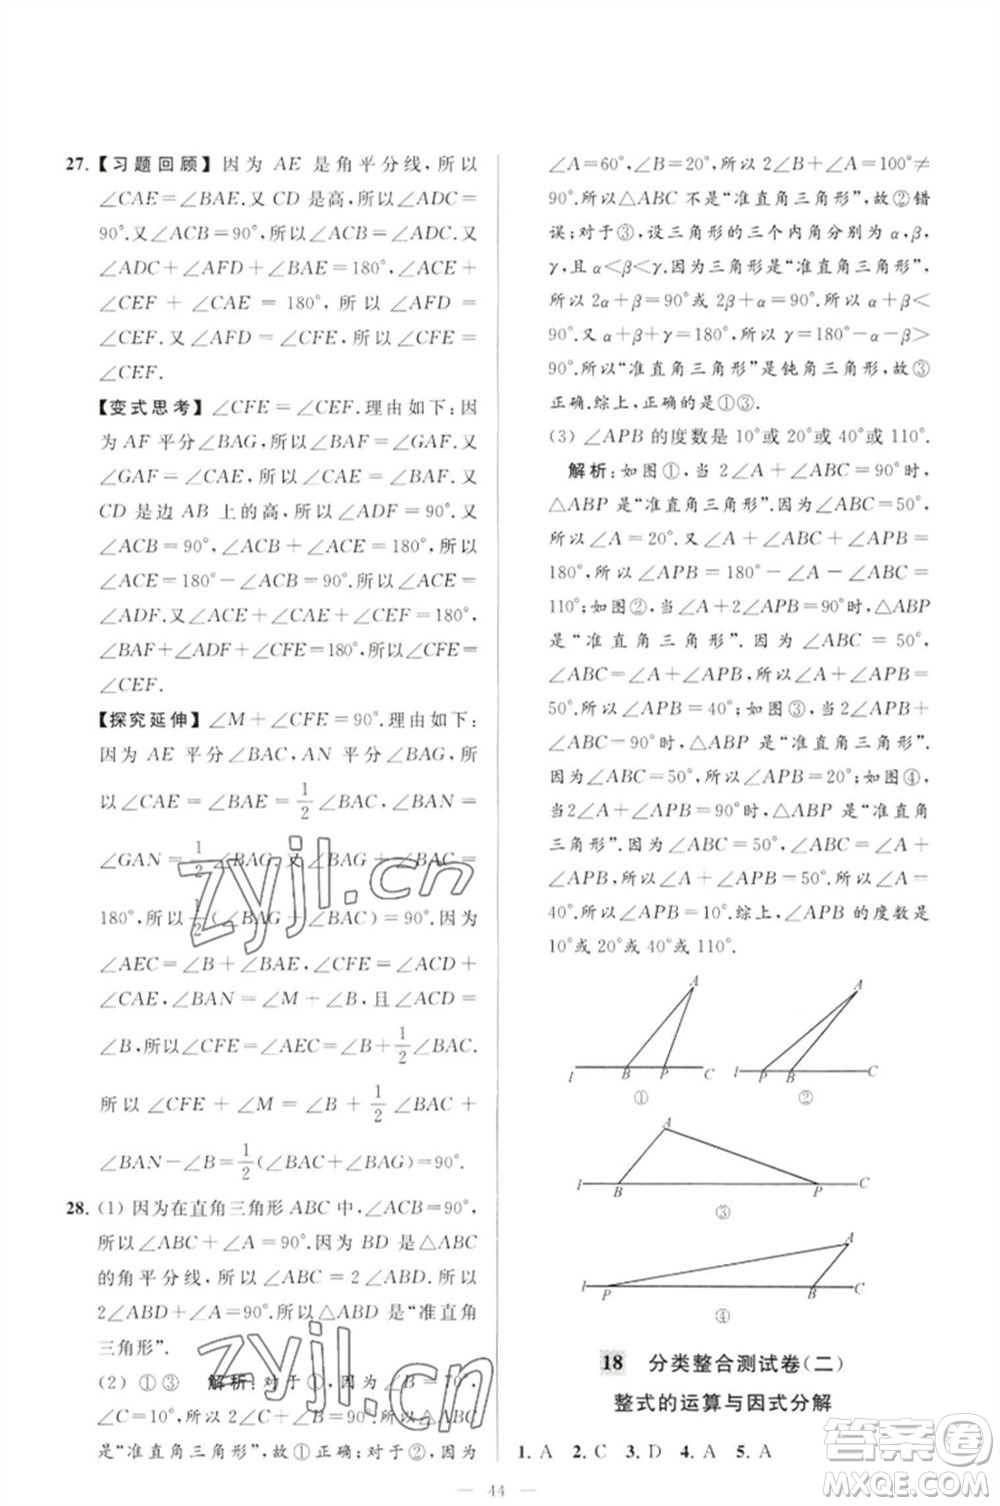 27. 【习题回顾】因为 AE 是角平分线,所以
∠CAE=∠BAE.又 CD 是高,所以∠ADC=
90°.又∠ACB=90°,所以∠ACB=∠ADC.又
∠ADC+∠AFD+∠BAE=180°,∠ACE+
∠CEF+∠CAE=180°,所以∠AFD=
∠CEF.又∠AFD=∠CFE,所以∠CFE=
∠CEF.
【变式思考】∠CFE=∠CEF.理由如下:因
为 AF 平分∠BAG,所以∠BAF=∠GAF.又
∠GAF=∠CAE,所以∠CAE=∠BAF.又
CD 是边 AB 上的高,所以∠ADF=90°.又
∠ACB=90°,∠ACB+∠ACE=180°,所以
∠ACE=180°-∠ACB=90°,所以∠ACE=
∠ADF.又∠ACE+∠CAE+∠CEF=180°,
∠BAF+∠ADF+∠CFE=180°,所以∠CFE=
∠CEF.
【探究延伸】∠M+∠CFE=90°.理由如下:
因为 AE 平分∠BAC,AN 平分∠BAG,所
以∠CAE=∠BAE=1/2∠BAC,∠BAN=
∠GAN=1/2∠BAG.又∠BAG+∠BAC=
180°,所以1/2(∠BAG+∠BAC)=90°.因为
∠AEC=∠B+∠BAE,∠CFE=∠M+
∠CAE,∠BAN=∠M+∠B,且∠CAE+
∠B,所以∠CFE=∠AEC=∠B+1/2∠BAC.
所以∠CFE+∠M=∠B+1/2∠BAC+
∠BAN-∠B=1/2(∠BAC+∠BAG)=90°.
28. (1) 因为在直角三角形 ABC 中,∠ACB=90°,
所以∠ABC+∠A=90°.因为 BD 是△ABC
的角平分线,所以∠ABC=2∠ABD.所以
2∠ABD+∠A=90°.所以△ABD是“准直角
三角形”.
(2) ①③ 解析:对于①,因为∠B=70°,
∠C=10°,所以∠B+2∠C=90°.所以△ABC
是“准直角三角形”,故①正确;对于②,因为
∠A=60°,∠B=20°,所以 2∠B+∠A=100°≠
90°.所以△ABC 不是“准直角三角形”,故②错
误;对于③,设三角形的三个内角分别为α,β,
γ,且α<β<γ.因为三角形是“准直角三角形”,
所以 2α+β=90°或 2β+α=90°.所以α+β<
90°.又α+β+γ=180°,所以γ=180°-(α+β)>
90°.所以“准直角三角形”是钝角三角形,故③
正确.综上,正确的是①③.
(3) ∠APB 的度数是 10°或 20°或 40°或 110°.
解析:如图①,当 2∠A+∠ABC=90°时,
△ABP 是“准直角三角形”.因为∠ABC=50°,
所以∠A=20°.又∠A+∠ABC+∠APB=
180°,所以∠APB=180°-∠A-∠ABC=
110°;如图②,当∠A+2∠APB=90°时,△ABP
是“准直角三角形”.因为∠ABC=50°,
∠ABC=∠A+∠APB,所以∠A+∠APB=
50°.所以∠APB=40°;如图③,当 2∠APB+
∠ABC=90°时,△ABP 是“准直角三角形”.
因为∠ABC=50°,所以∠APB=20°;如图④,
当2∠A+∠APB=90°时,△ABP是“准直角
三角形”.因为∠ABC=50°,∠ABC=∠A+
∠APB,所以∠A+∠APB=50°.所以∠A=
40°.所以∠APB=10°.综上,∠APB的度数是
10°或 20°或 40°或 110°.
A
l B P C
①
A
l P B C
②
A
l B P C
③
A
l P B C
④
18 分类整合测试卷(二)
整式的运算与因式分解
1. A 2. C 3. D 4. A 5. A
— 44 —
zyjl.cn
zyjl.cn
答案圈
MXQE.COM